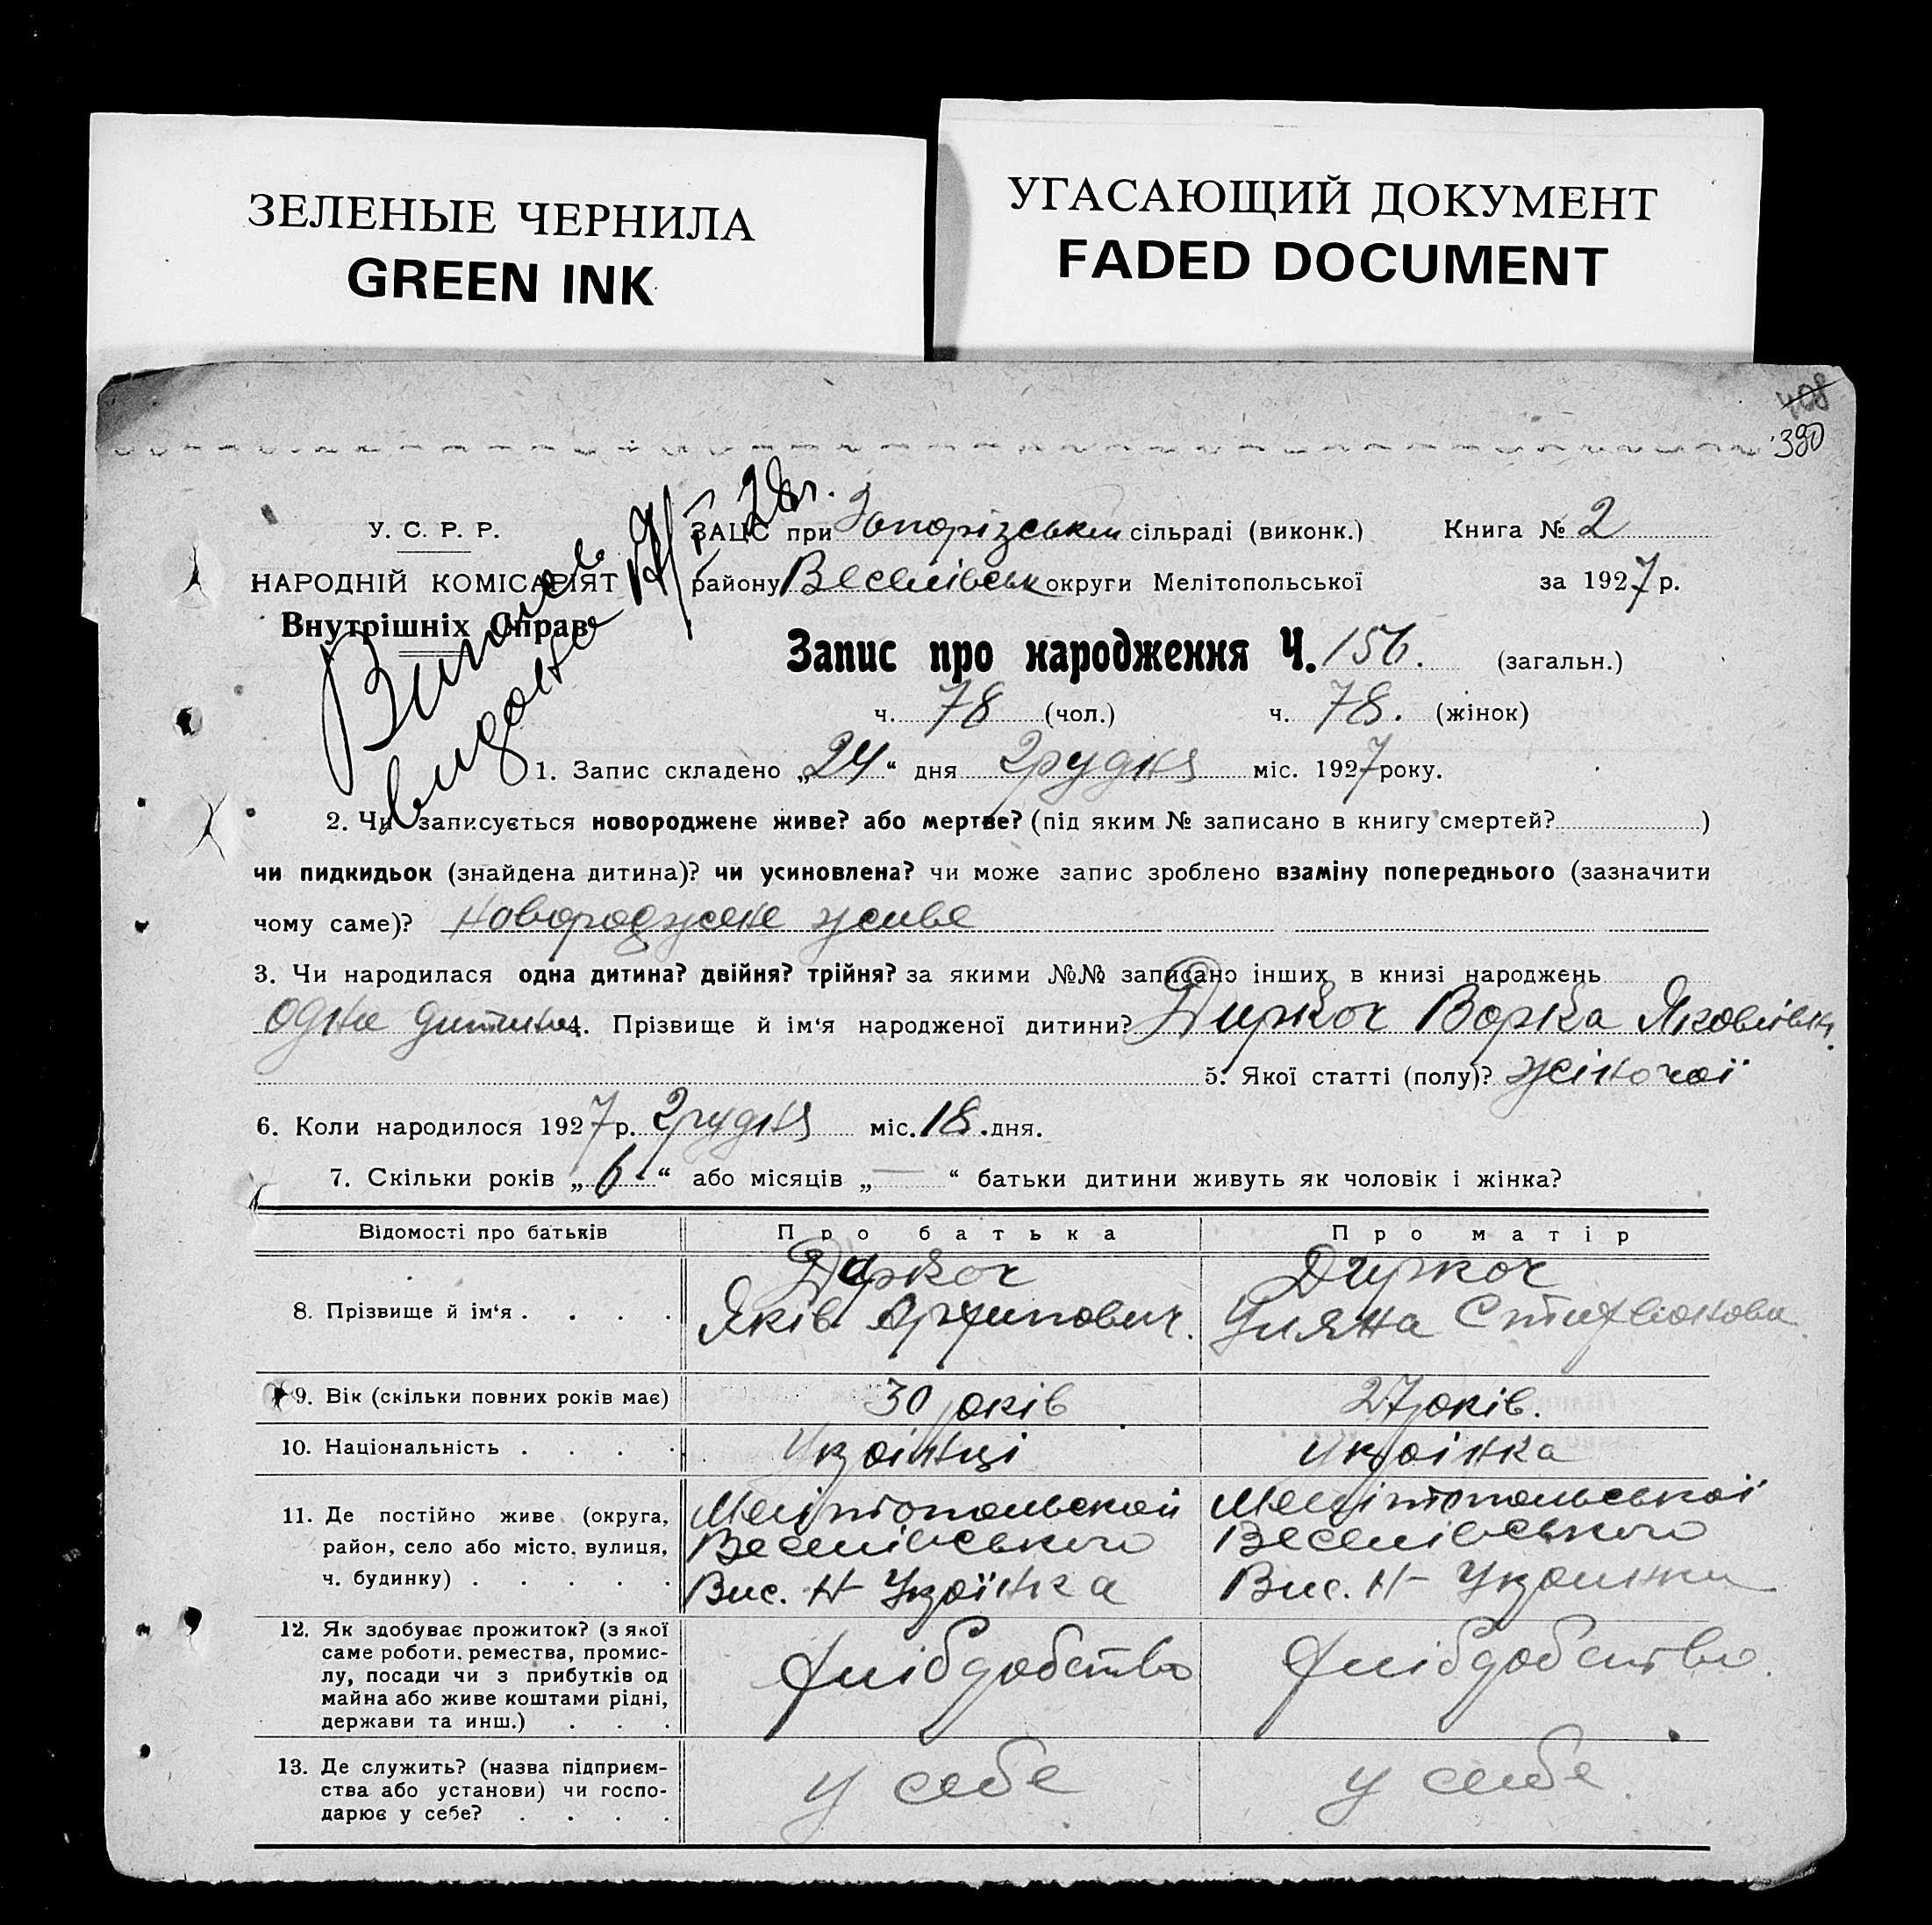 ЗЕЛЕНЫЕ ЧЕРНИЛА
GREEN INK
УГАСАЮЩИЙ ДОКУМЕНТ
FADED DOCUMENT
408
390
28 г.
У. С. Р. Р.
ЗАЦС при Запорізській сільраді (виконк.) Книга № 2
НАРОДНІЙ КОМІСАРІЯТ
району Веселівськ округи Мелітопольської за 1927 р.
Внутрішніх Справ
видано
Запис про народження Ч. 156. (загальн.)
ч. 78 (чол.) ч. 78. (жінок)
1. Запис складено „24“ дня Грудня міс. 1927 року.
2. Чи записується новороджене живе? або мертве? (під яким № записано в книгу смертей? )
чи пидкидьок (знайдена дитина)? чи усиновлена? чи може запис зроблено взаміну попереднього (зазначити
чому саме)? новороджене живе
3. Чи народилася одна дитина? двійня? трійня? за якими №№ записано інших в книзі народжень
одна дитина 4. Прізвище й ім‘я народженої дитини? Диркоч Ворка Яковівна.
5. Якої статті (полу)? жіночої
6. Коли народилося 1927 р. Грудня міс. 18. дня.
7. Скільки років „6.“ або місяців „—“ батьки дитини живуть як чоловік і жінка?
Відомості про батьків Про батька Про матір
8. Прізвище й ім‘я . . . .
Диркоч
Яків Архипович.
Диркоч
Уляна
9. Вік (скільки повних років має) 30 років 27 років.
10. Національність . . . . Українці Українка
11. Де постійно живе (округа,
район, село або місто, вулиця,
ч. будинку) . . . . .
Мелітопольской
Веселівського
Вис. Н-Українка
Мелітопольської
Веселівського
Вис. Н-Українка
12. Як здобуває прожиток? (з якої
саме роботи, ремества, промис-
лу, посади чи з прибутків од
майна або живе коштами рідні,
держави та инш.) . . .
хлібдобство
хлібдобство.
13. Де служить? (назва підприєм-
ства або установи) чи госпо-
дарює у себе? . . . .
у себе
у себе.